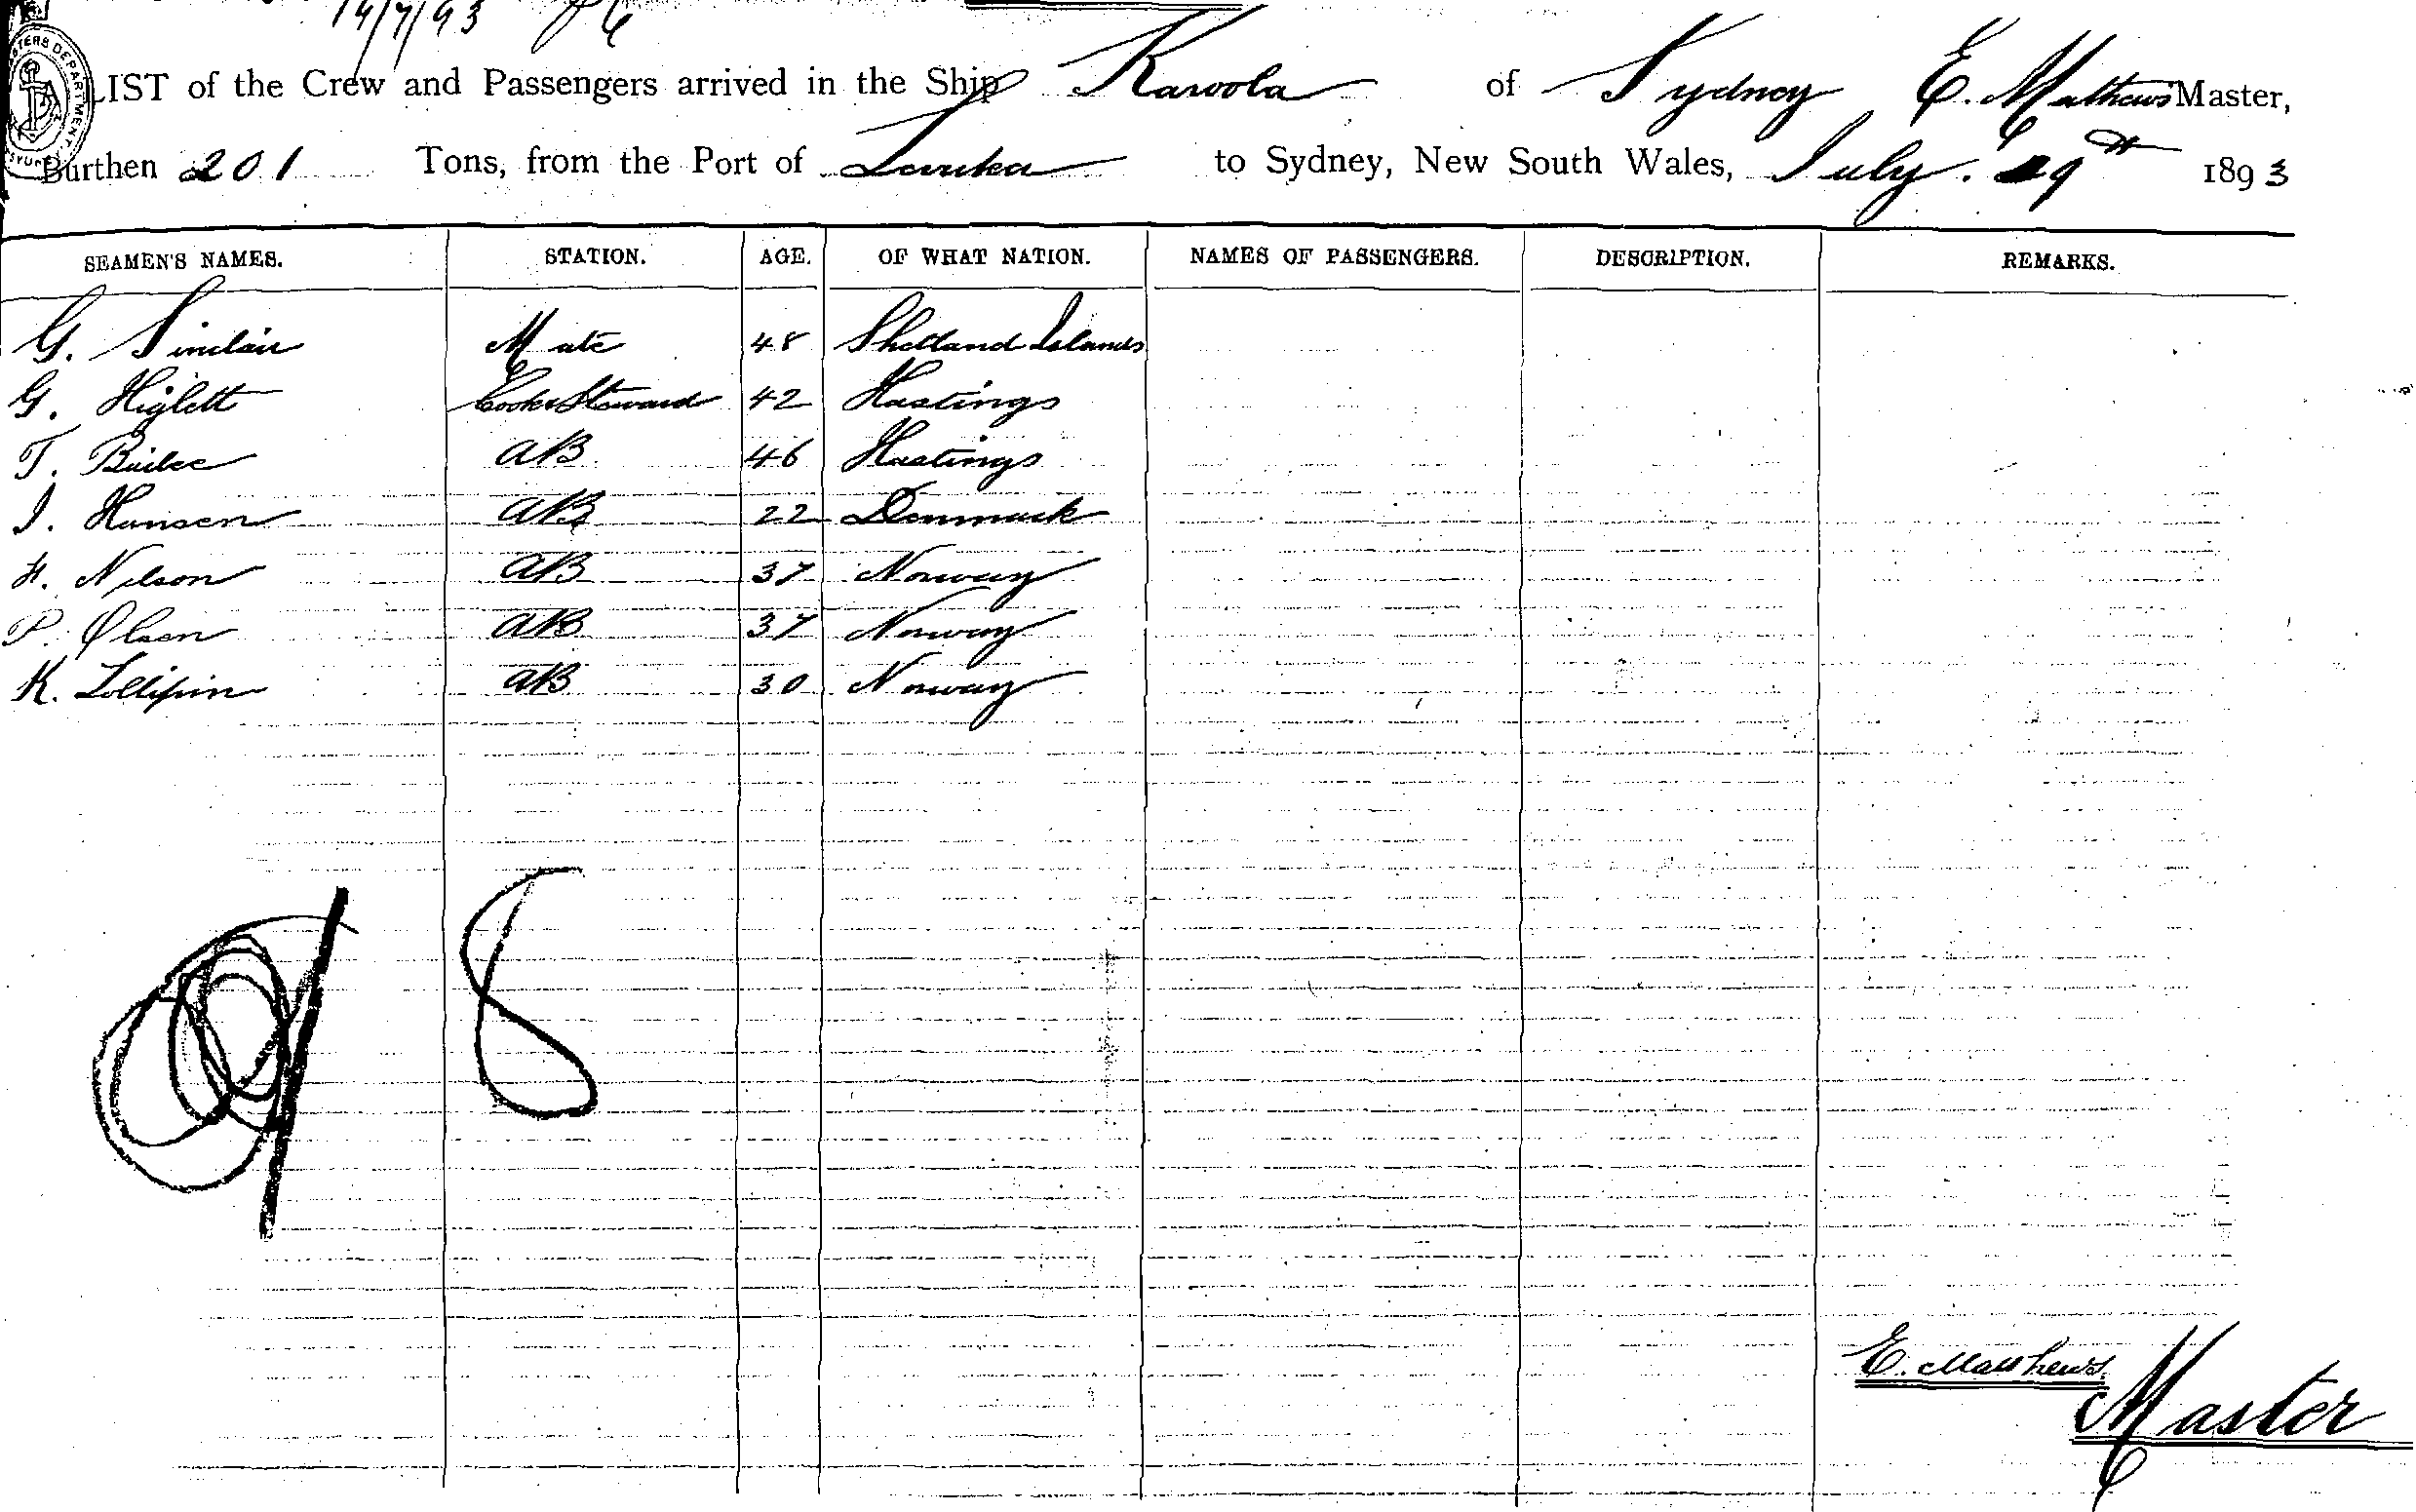 14/7/93
A LIST of the Crew and Passengers arrived in the Ship Karoola of Sydney E. Mathews Master,
Burthen 201 Tons, from the Port of Levuka to Sydney, New South Wales, July 1893
SEAMEN'S NAMES. STATION. AGE. OF WHAT NATION. NAMES OF PASSENGERS. DESCRIPTION. REMARKS.
G. Sinclair Mate 48 Shetland Islands
G. Higlett Cook & Steward 42 Hastings
T. AB 46 Hastings
J. Hansen AB 22 Denmark
H. Nilson AB 37 Norway
P. Olsen AB 37 Norway
K. AB 30 Norway
8
E. Matthews
Master